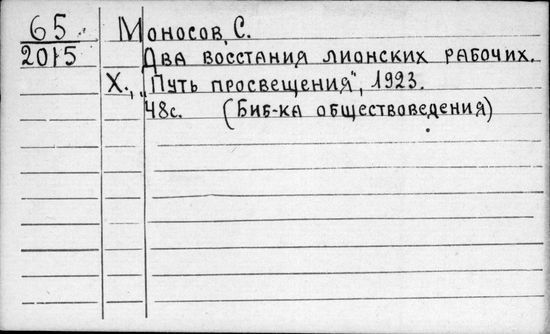 65 Моносов, С.
2015 Два восстания лионских рабочих.
Х., „Путь просвещения", 1923.
48с. (Биб-ка обществоведения)